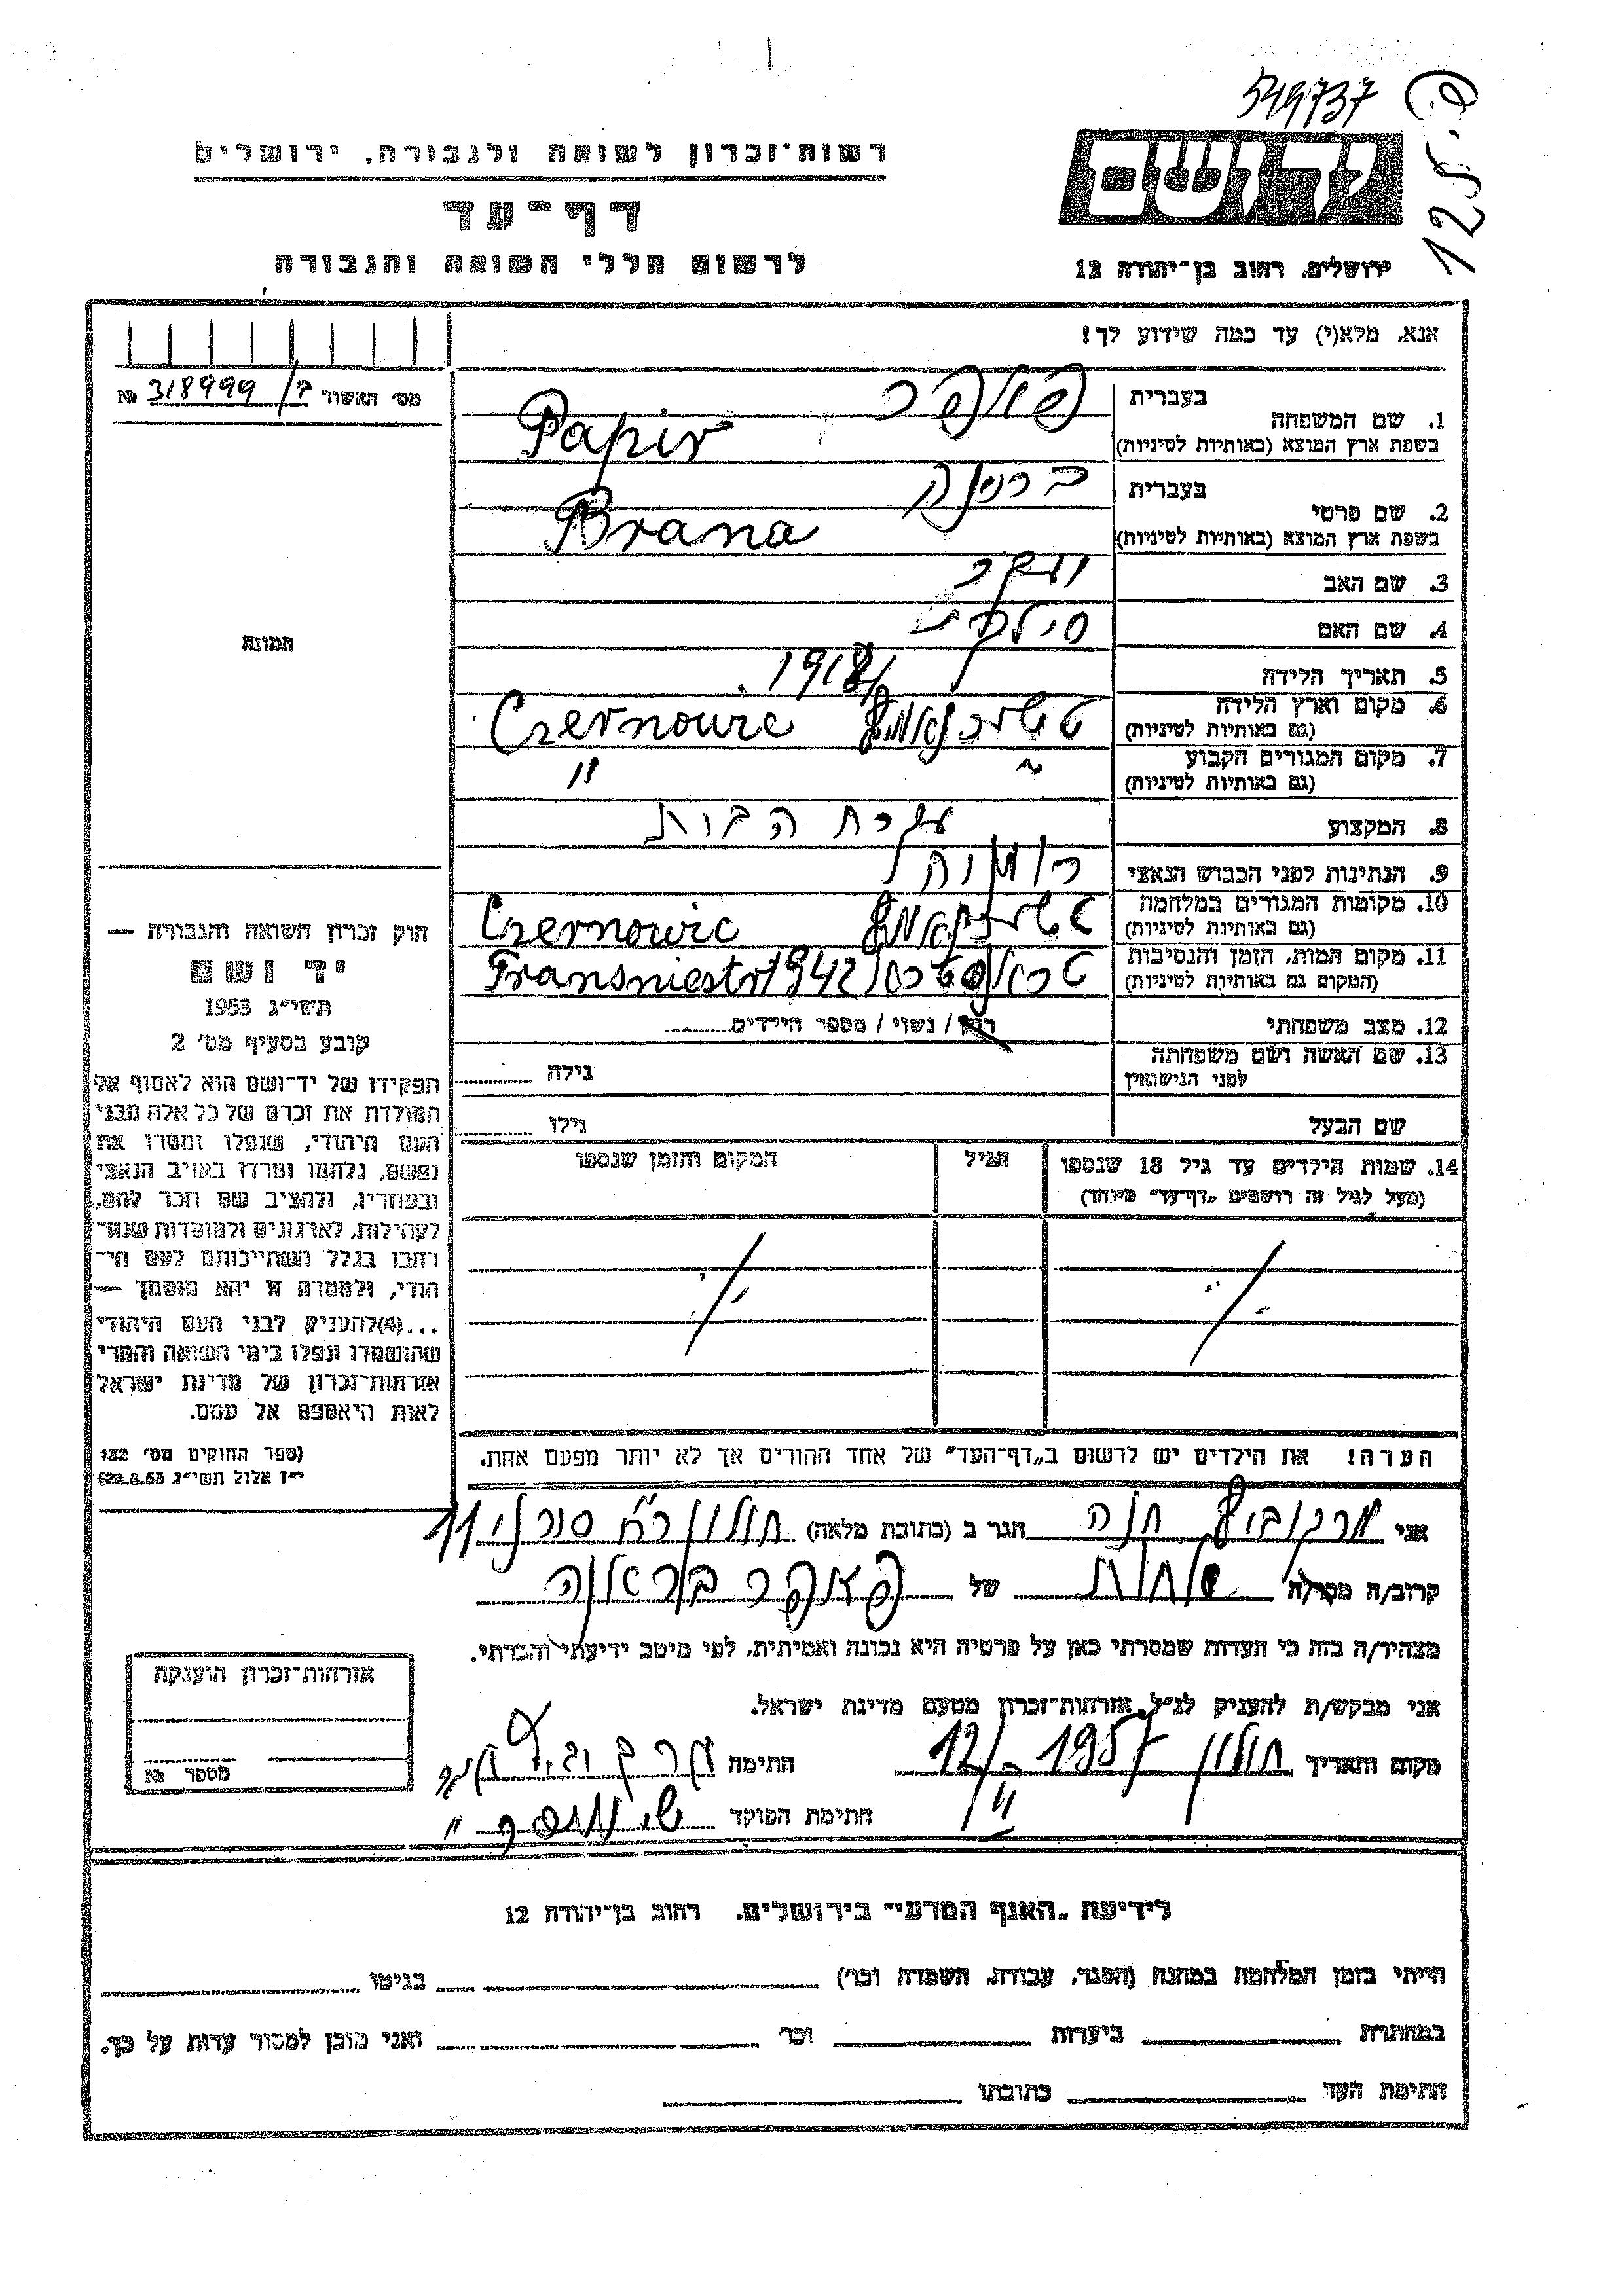 549737
רשות־זכרון לשואה ולגבורה, ירושלים
דף־עד
לרשום חללי השואה והגבורה
ירושלים, רחוב בן־יהודה 12
125
אנא, מלא(י) עד כמה שידוע לך!
מס׳ האשור 318999 №
1. שם המשפחה
בעברית
בשפת ארץ המוצא (באותיות לטיניות) Papir
2. שם פרטי
בעברית
בשפת ארץ המוצא (באותיות לטיניות) Brana
3. שם האב
4. שם האם
5. תאריך הלידה 1918
6. מקום וארץ הלידה
(גם באותיות לטיניות)
7. מקום המגורים הקבוע
(גם באותיות לטיניות) "
8. המקצוע עקרת הבית
9. הנתינות לפני הכבוש הנאצי
10. מקומות המגורים במלחמה
(גם באותיות לטיניות) Czernowic
11. מקום המות, הזמן והנסיבות
(המקום גם באותיות לטיניות) Transniestr 1942
12. מצב משפחתי רוק / נשוי / מספר הילדים
13. שם האשה ושם משפחתה
לפני הנישואין גילה
שם הבעל גילו
14. שמות הילדים עד גיל 18 שנספו
(מעל לגיל זה רושמים „דף־עד״ מיוחד)
הגיל
המקום והזמן שנספו
הערה! את הילדים יש לרשום ב„דף־העד״ של אחד ההורים אך לא יותר מפעם אחת.
תמונה
חוק זכרון השואה והגבורה —
יד ושם
תשי״ג 1953
קובע בסעיף מס׳ 2
תפקידו של יד־ושם הוא לאסוף אל
המולדת את זכרם של כל אלה מבני
העם היהודי, שנפלו ומסרו את
נפשם, נלחמו ומרדו באויב הנאצי
ובעוזריו, ולהציב שם וזכר להם,
לקהילות, לארגונים ולמוסדות שנח־
רבו בגלל השתייכותם לעם הי־
הודי, ולמטרה זו יהא מוסמך —
...(4)להעניק לבני העם היהודי
שהושמדו ונפלו בימי השואה והמרי
אזרחות־זכרון של מדינת ישראל
לאות היאספם אל עמם.
(ספר החוקים מס׳ 132
י״ז אלול תשי״ג 28.8.53)
אני חנה הגר ב (כתובת מלאה) חולון 11
קרוב/ה מסר/ה של
מצהיר/ה בזה כי העדות שמסרתי כאן על פרטיה היא נכונה ואמיתית, לפי מיטב ידיעתי והכרתי.
אני מבקש/ת להעניק לנ״ל אזרחות־זכרון מטעם מדינת ישראל.
מקום ותאריך חולון 12/ 1957 חתימה
חתימת הפוקד
אזרחות־זכרון הוענקה
מספר №
לידיעת „האגף המדעי״ בירושלים. רחוב בן־יהודה 12
הייתי בזמן המלחמה במחנה (הסגר, עבודה, השמדה וכו׳) בגיטו
במחתרת ביערות וכו׳ ואני מוכן למסור עדות על כך.
חתימת העד כתובתו